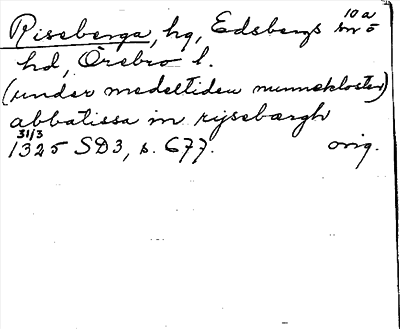 Riseberga, hg, Edsbergs 10 a
hd, Örebro l.
(under medeltiden nunnekloster)
abbatissa in rysebærgh
31/3
1325 SD3, s. 677. orig.